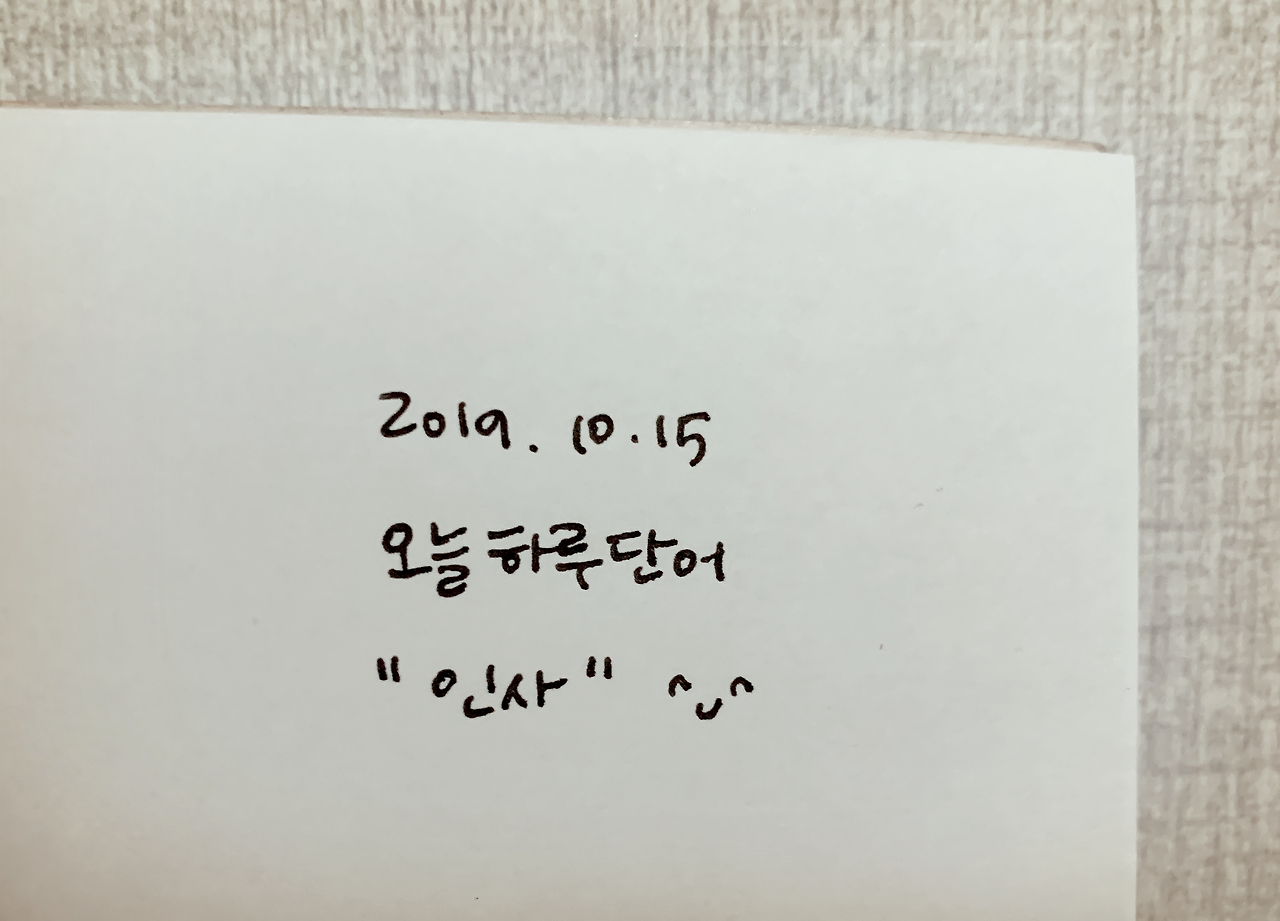 2019. 10.15
오늘 하루 단어
"인사" ^◡^